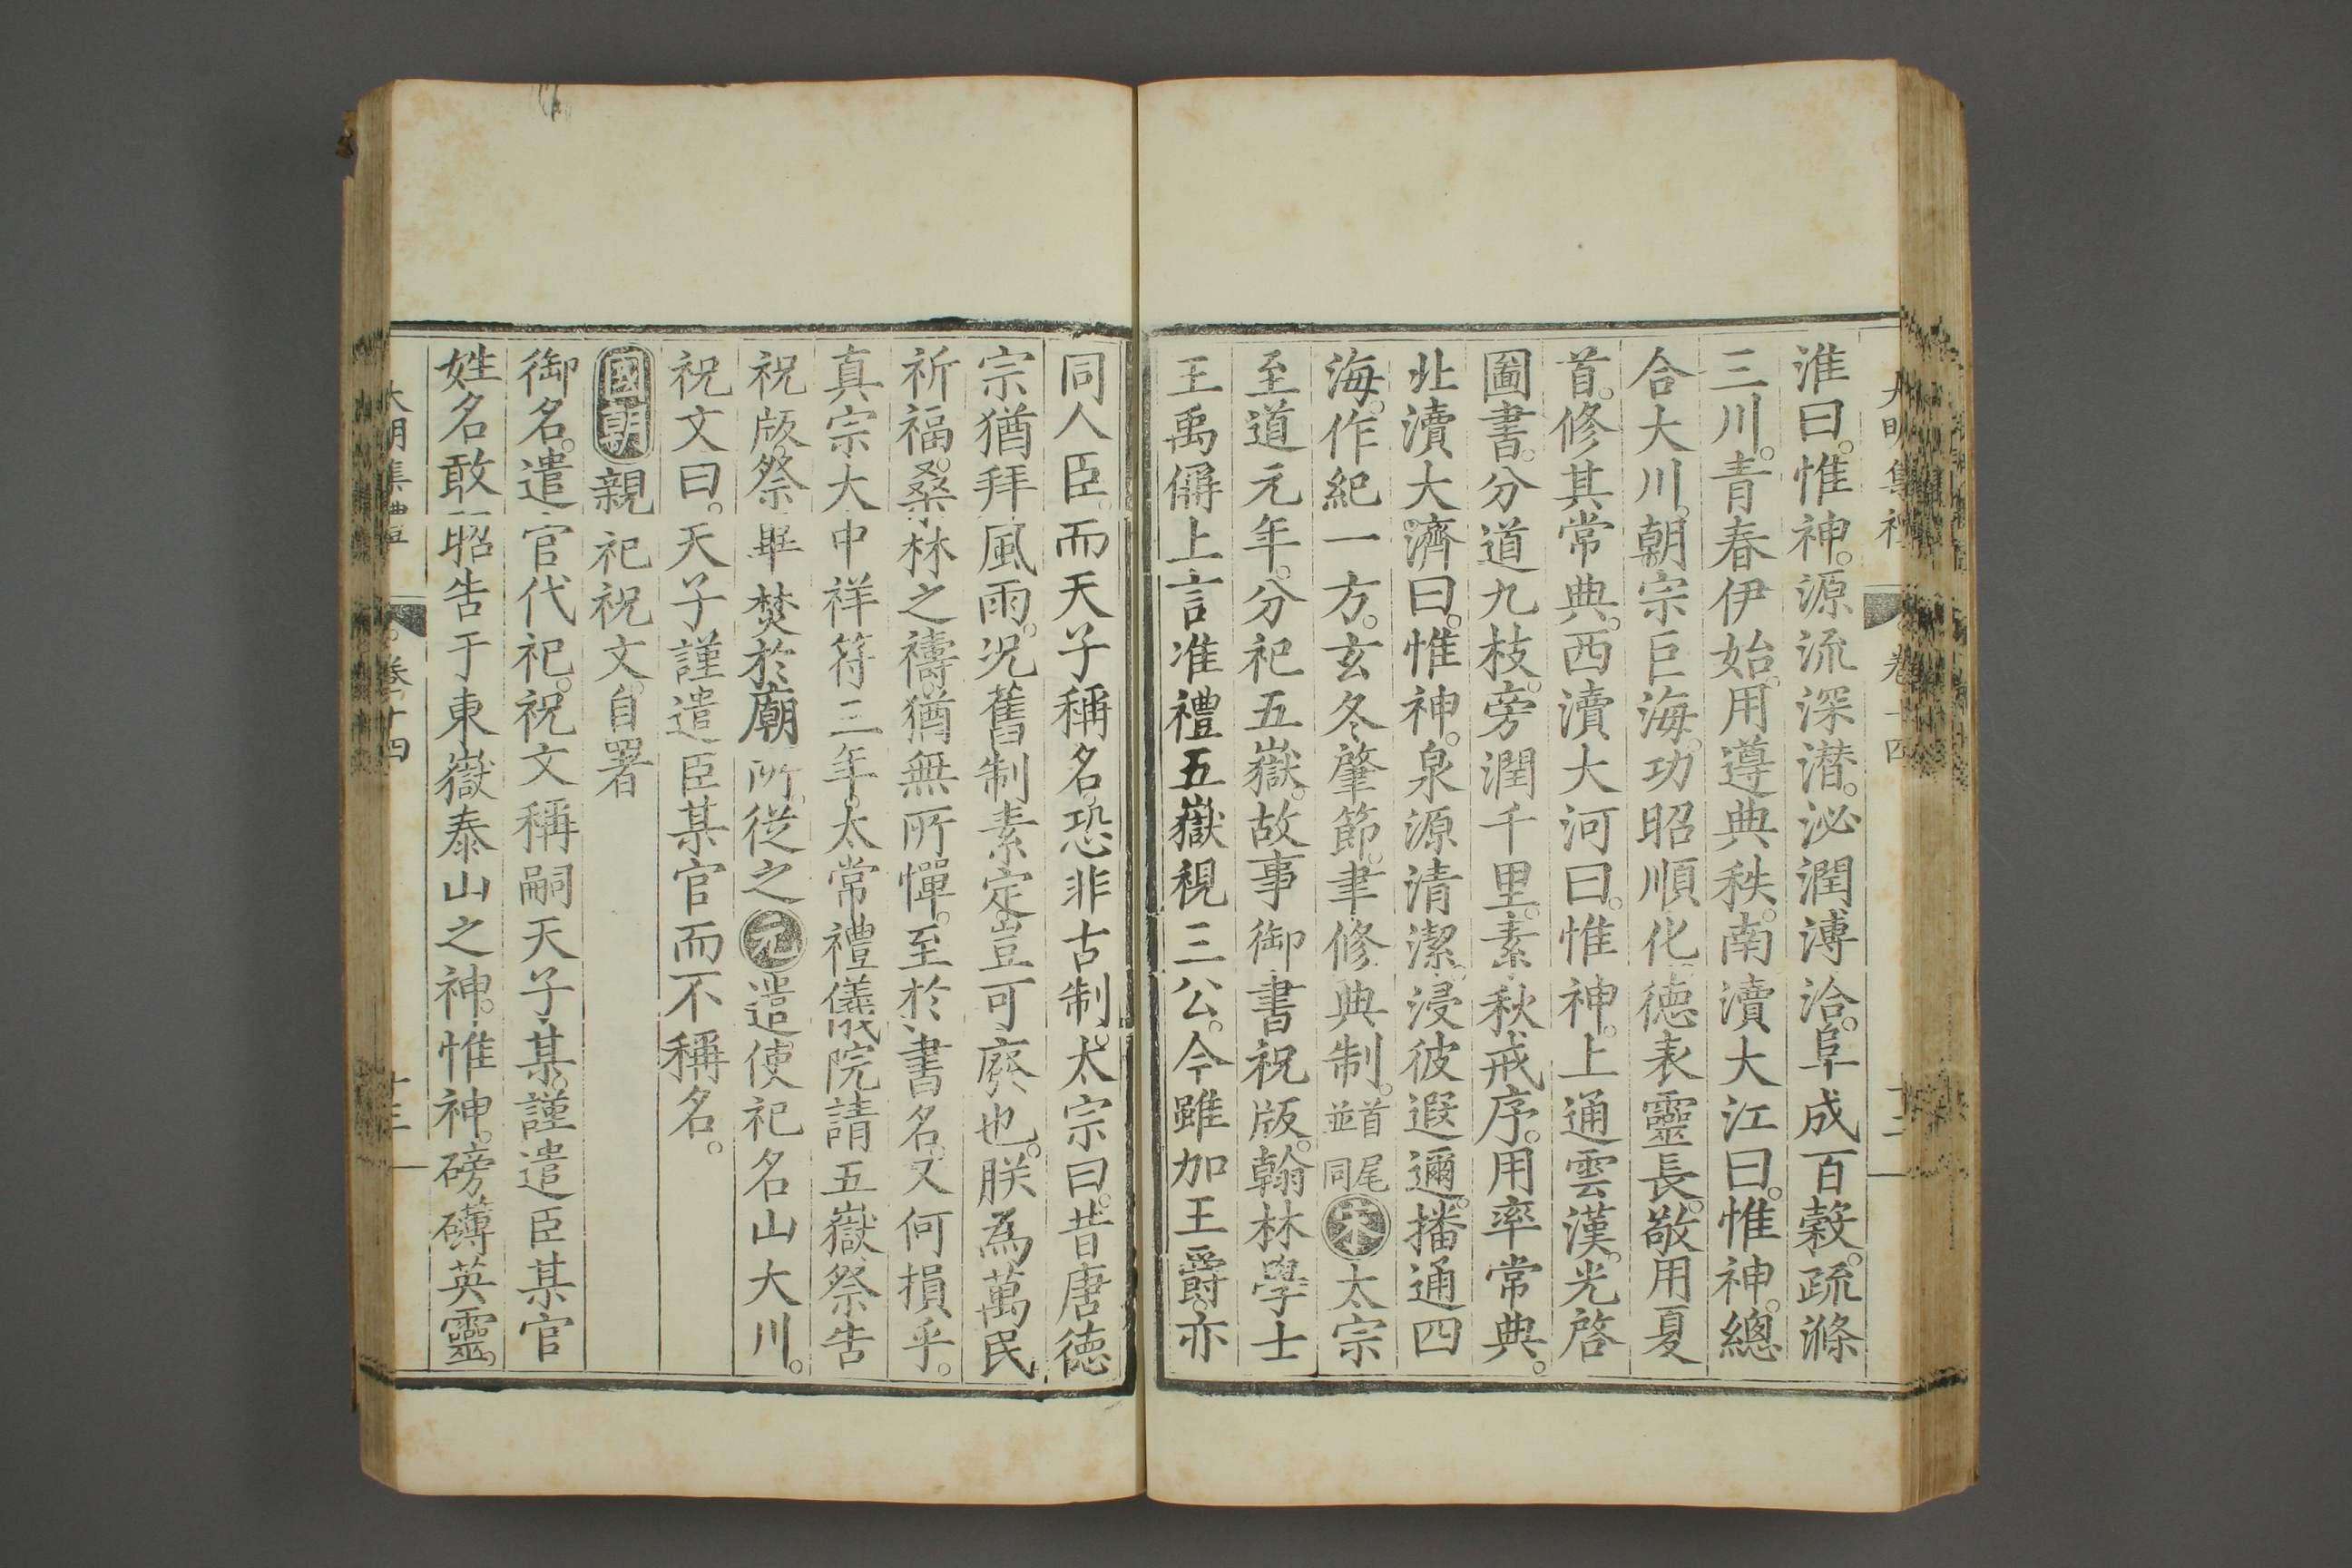 大明集禮 卷十四 十二
淮曰。惟神。源流深潜。泌潤溥洽。阜成百榖。疏滌
三川。青春伊始。用遵典秩。南瀆大江曰。惟神。總
合大川。朝宗巨海。功昭順化。德表靈長。敬用夏
首。修其常典。西瀆大河曰。惟神。上通雲漢。光啓
圖書。分道九枝。旁潤千里。素秋戒序。用率常典。
北瀆大濟曰。惟神。泉源清潔。浸彼遐邇。播通四
海。作紀一方。玄冬肇節。聿修典制。並首同尾宋太宗
至道元年。分祀五嶽。故事御書祝版。翰林學士
王禹偁上言准禮五嶽視三公。今雖加王爵。亦
同人臣。而天子稱名。恐非古制。太宗曰。昔唐德
宗猶拜風雨。况舊制素定。豈可廢也。朕為萬民
祈福。桑林之禱。猶無所憚。至於書名。又何損乎。
真宗大中祥符三年。太常禮儀院請五嶽祭告
祝版。祭畢焚於廟所。從之元遣使祀名山大川。
祝文曰。天子謹遣臣某官而不稱名。
國朝親祀祝文。自署
御名。遣官代祀。祝文稱嗣天子某。謹遣臣某官
姓名敢昭告于東嶽泰山之神。惟神。磅礡英靈。
大明集禮 卷十四 十三